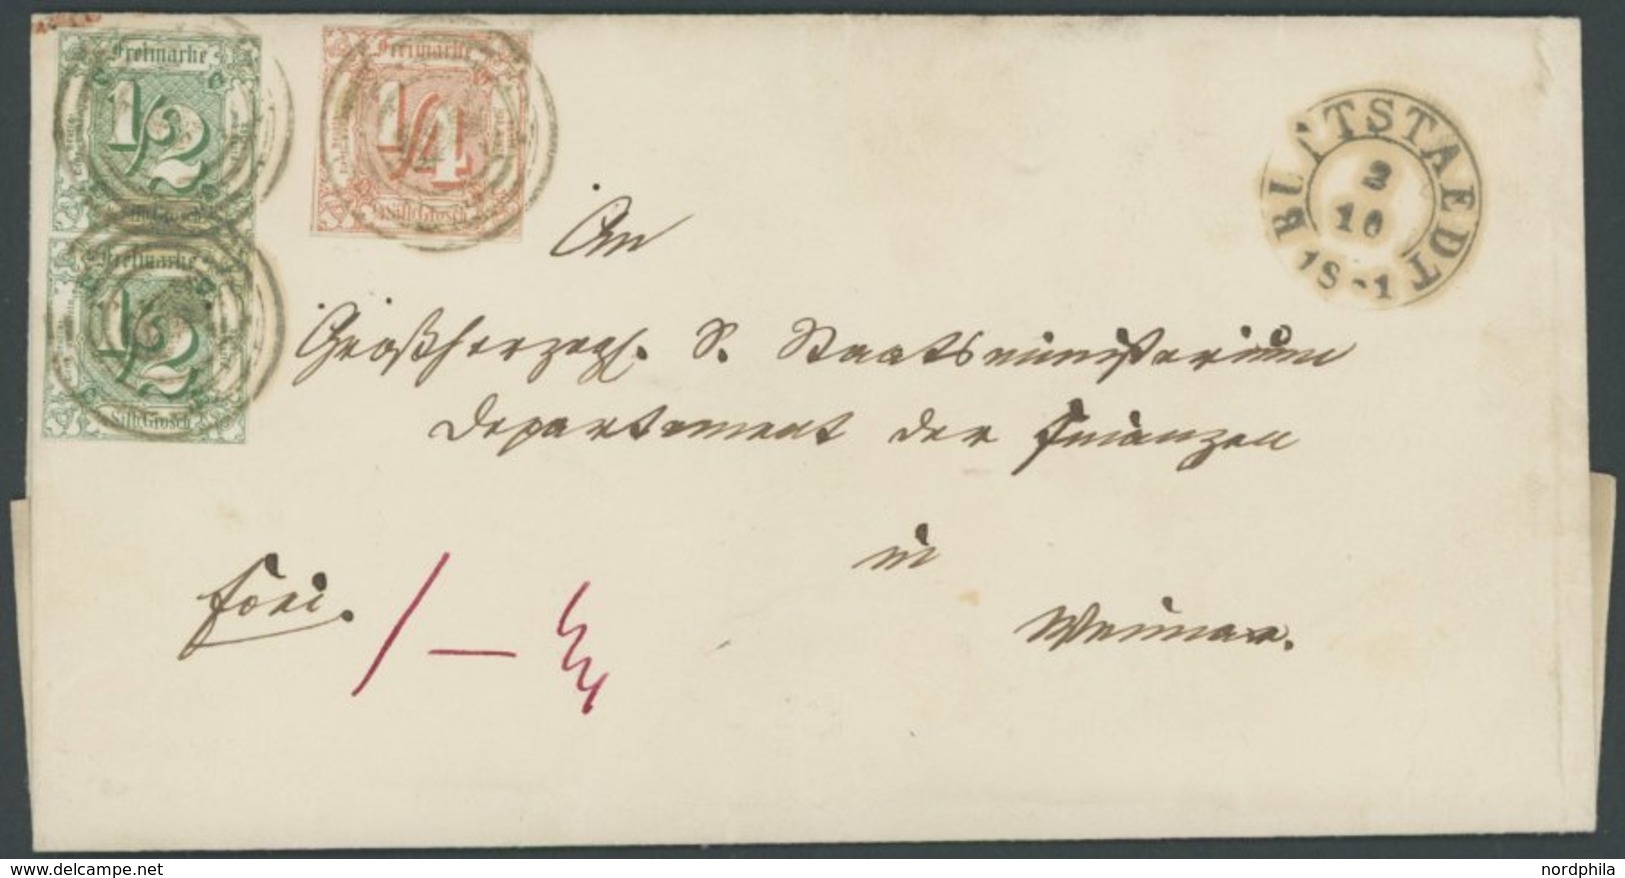 Freimarke
1/2
Silb. Grosch.
Freimarke
1/2
Silb. Grosch.
Freimarke
1/4
Silb. Grosch.
BUTTSTAEDT
2
10
An
Großherzogl. S. Staatsministerium
Departement der Finanzen
in
Weimar.
frei.
nordphila